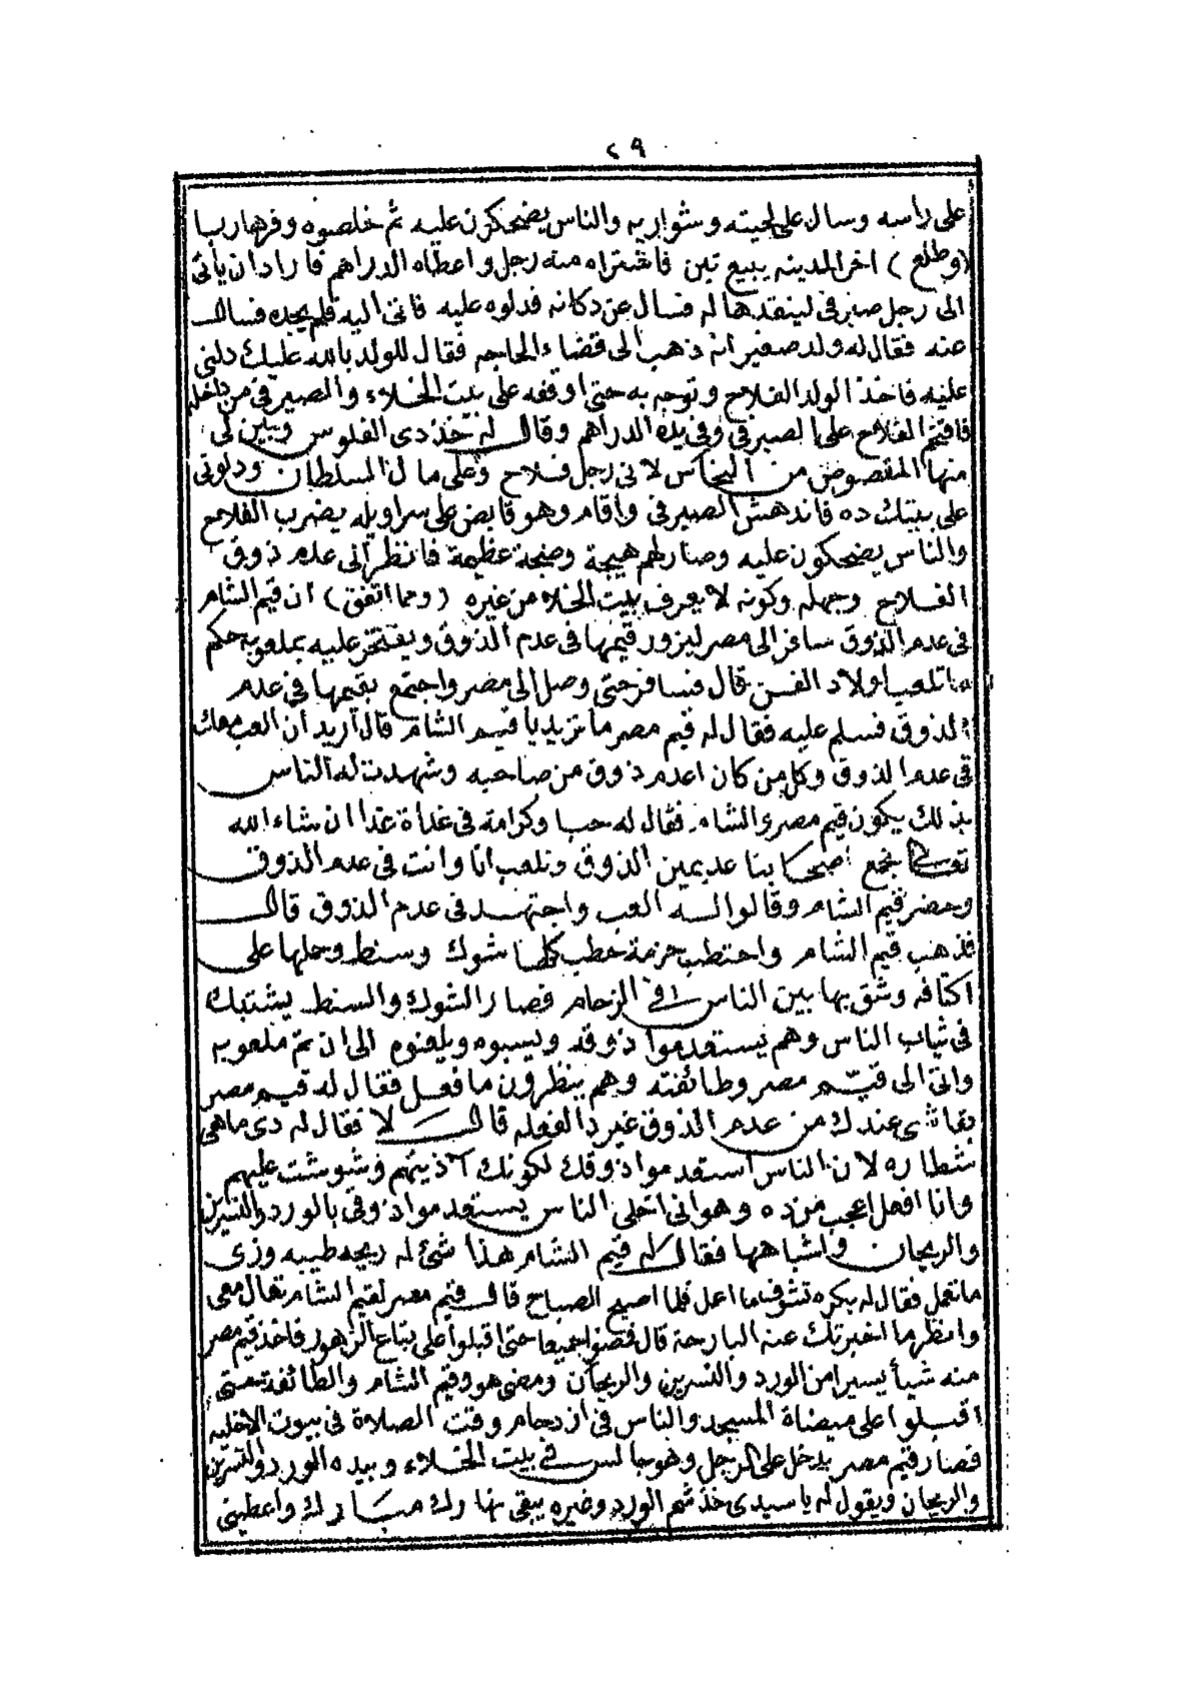 ٢٩
على راسه وسال على لحيته وشواربه والناس يضحكون عليه ثم خلصوه وفر هاربا
(وطلع) اخر المدينه يبيع تبن فاشتراه منه رجل واعطاه الدراهم فاراد ان ياتى
الى رجل صيرفى لينقدها له فسال عن دكانه فدلوه عليه فاتى اليه فلم يجده فسال
عنه فقال له ولد صغير انه ذهب الى قضاء الحاجه فقال للولد بالله عليك دلنى
عليه فاخذ الولد الفلاح وتوجه به حتى اوقفه على بيت الخلاء والصيرفى من داخله
فاقتحم الفلاح على الصيرفى وفى يده الدراهم وقال له خذ دى الفلوس وبين لى
منها المقصوص من النحاس لانى رجل فلاح وعلى مال السلطان ودلونى
على بيتك ده فاندهش الصيرفى واقام وهو قابض على سراويله يضرب الفلاح
والناس يضحكون عليه وصار لهم هيجة وضجة عظيمة فانظر الى عدم ذوق
الفلاح وجهله وكونه لا يعرف بيت الخلا من غيره (ومما اتفق) ان قيم الشام
فى عدم الذوق سافر الى مصر ليزور قيمها فى عدم الذوق ويفتخر عليه بملعوبه حكم
ما تلعب اولاد الفن قال فسافر حتى وصل الى مصر واجتمع بقيمها فى عدم
الذوق فسلم عليه فقال له قيم مصر ما تريد يا قيم الشام قال اريد ان العب معك
فى عدم الذوق وكل من كان اعدم ذوق من صاحبه وشهدت له الناس
بذلك يكون قيم مصر والشام فقال له حبا وكرامة فى غداة غدا ان شاء الله
تعالى نجمع اصحابنا عديمين الذوق ونلعب انا وانت فى عدم الذوق
وحضر قيم الشام وقالوا له العب واجتهد فى عدم الذوق قال
فذهب قيم الشام واحتطب حزمة حطب كلها شوك وسنط وحملها على
اكتافه وشق بها بين الناس فى الزحام فصار الشوك والسنط يشتبك
فى ثياب الناس وهم يستعدموا ذوقه ويسبوه ويلعنوه الى ان تم ملعوبه
واتى الى قيم مصر وطائفته وهم ينظرون ما فعل فقال له قيم مصر
بقاشى عندك من عدم الذوق غير دالفعله قال لا فقال له دى ماهى
شطاره لان الناس استعدموا ذوقك لكونك آذيتهم وشوشت عليهم
وانا افعل اعجب من ده وهو انى اخلى الناس يستعدموا ذوقى بالورد والنسرين
والريحان واشباهها فقال له قيم الشام هذا شئ له ريحه طيبه وزى
ما تعمل فقال له بكره تشوف ما اعمل فلما اصبح الصباح قال قيم مصر لقيم الشام تعال معى
وانظر ما اخبرتك عنه البارحة قال فمضوا جميعا حتى اقبلوا على بتاع الزهور فاخذ قيم مصر
منه شيأ يسيرا من الورد والنسرين والريحان ومضى هو وقيم الشام والطائفة حتى
اقبلوا على ميضاة المسجد والناس فى ازدحام وقت الصلاة فى بيوت الاخليه
فصار قيم مصر يدخل على الرجل وهو جالس فى بيت الخلاء وبيده الورد والنسرين
والريحان ويقول له يا سيدى خذ شم الورد وغيره يبقى نهارك مبارك واعطينى